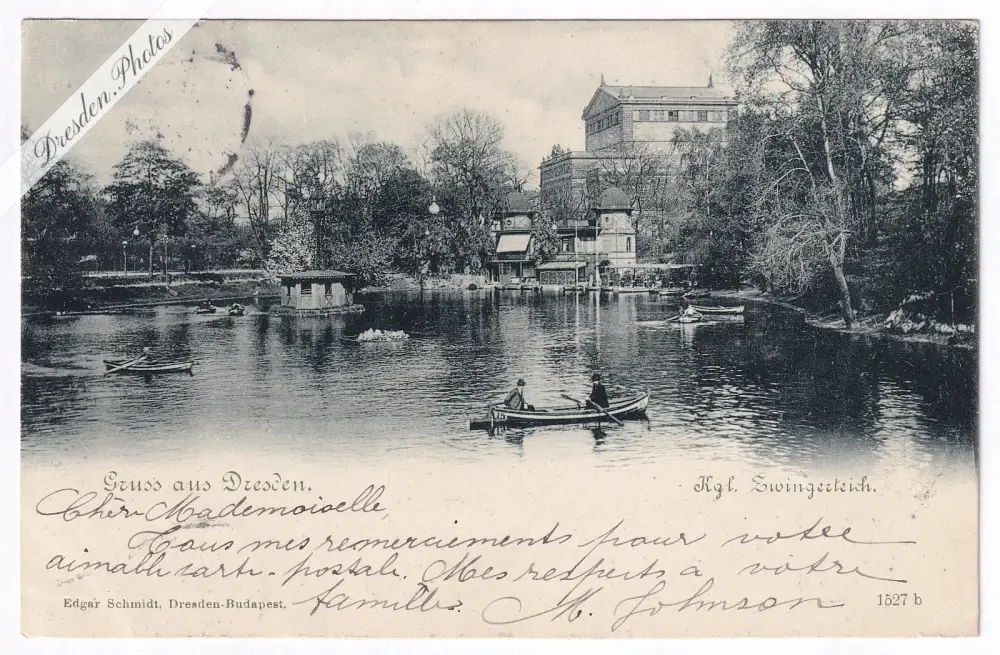 Dresden.Photos
Gruss aus Dresden.
Kgl. Zwingerteich.
Chère Mademoiselle,
Tous mes remerciements pour votre
aimable carte-postale. Mes respects a votre
famille.
M. Johnson
Edgar Schmidt, Dresden-Budapest.
1527 b